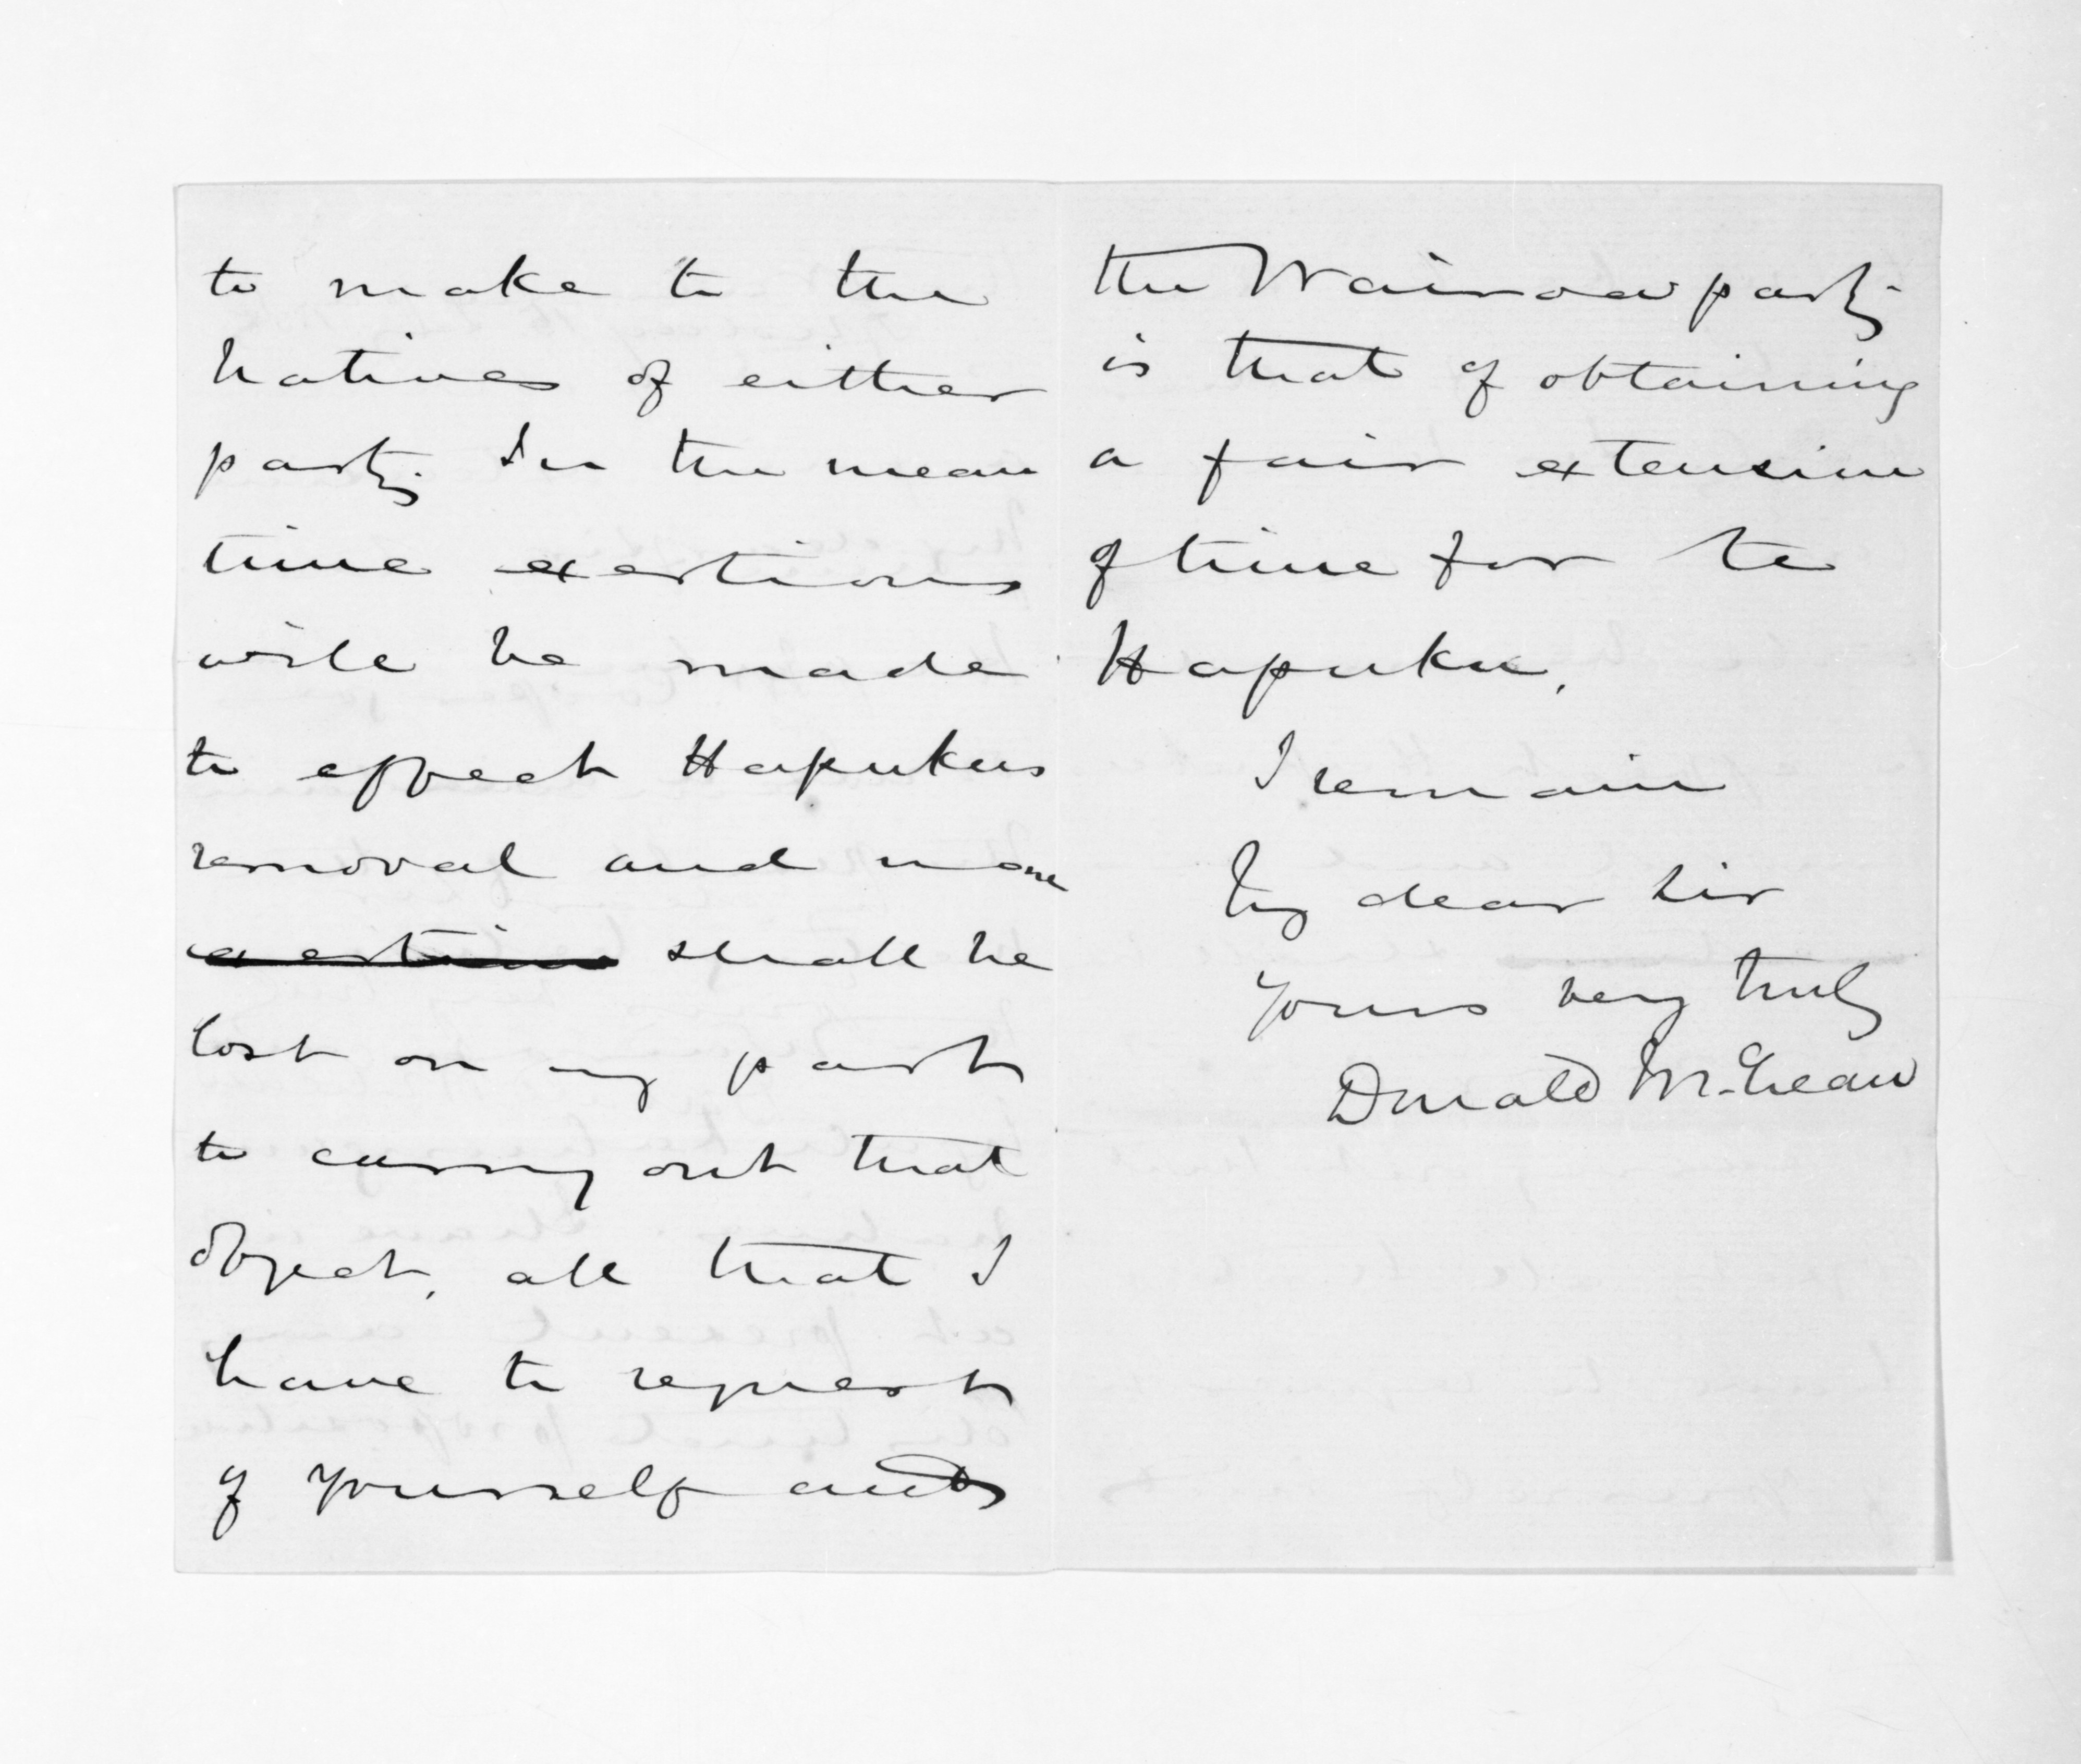 to make to the
Natives of either
party. In the mean
time exertions
will be made
to effect Hapukus
removal and none
exertions shall be
lost on my part
to carry out that
object, all that I
have to request
of yourself and
the Wairoa party
is that of obtaining
a fair extension
of time for te
Hapuku.
I remain
My dear Sir
yours very truly
Donald McLean